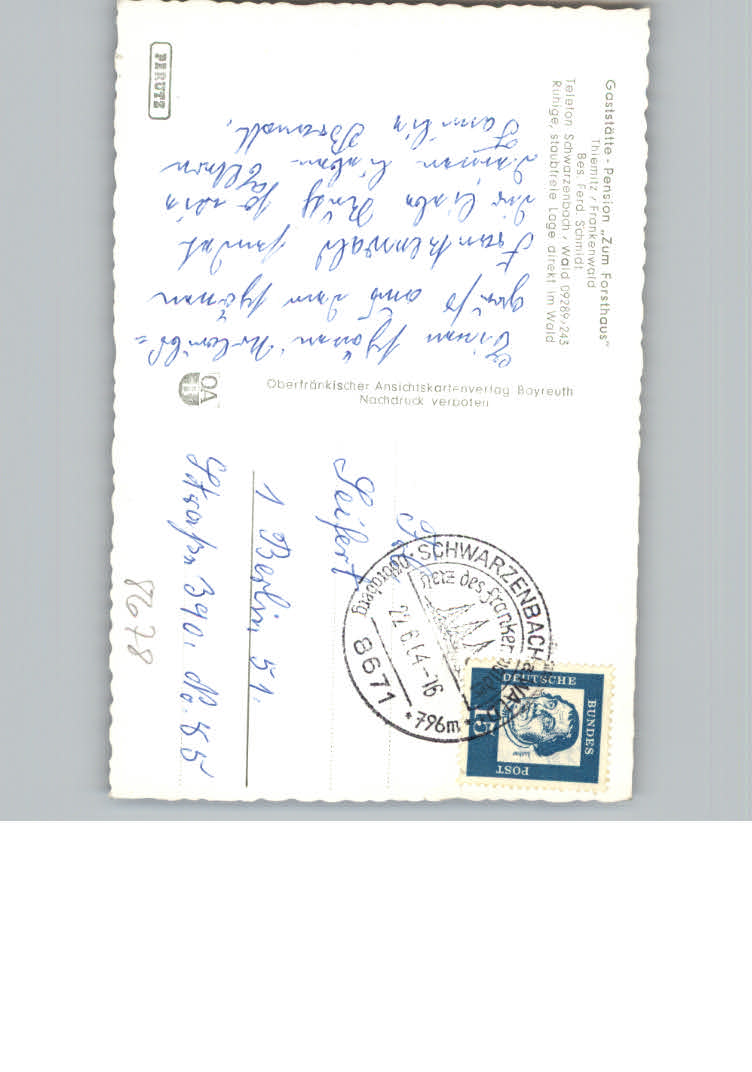 Gaststätte - Pension „Zum Forsthaus"
Thiemitz / Frankenwald
Bes. Ferd. Schmidt
Telefon Schwarzenbach / Wald 09289/243
Ruhige, staubfreie Lage direkt im Wald
Einen schönen Urlaubs=
gruß aus dem schönen
Frankenwald sendet
Dir liebe Ruth so wie
Deinen lieben Eltern
Familie
PERUTZ
OA
Oberfränkischer Ansichtskartenverlag Bayreuth
Nachdruck verboten
SCHWARZENBACH a. WALD
Döbraberg
Herz des Frankenwaldes
22.6.64-16
8671
*796m*
DEUTSCHE
BUNDES
POST
15
Luther
Seifert
1 Berlin 51.
Straße 390. No. 85
8678